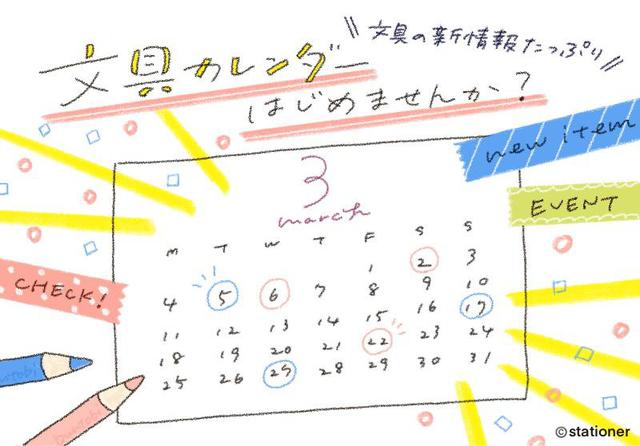 文具の新情報たっぷり
文具カレンダー
はじめませんか?
new item
EVENT
CHECK!
3
march
M T W T F S S
1 2 3
4 5 6 7 8 9 10
11 12 13 14 15 16 17
18 19 20 21 22 23 24
25 26 27 28 29 30 31
©stationer